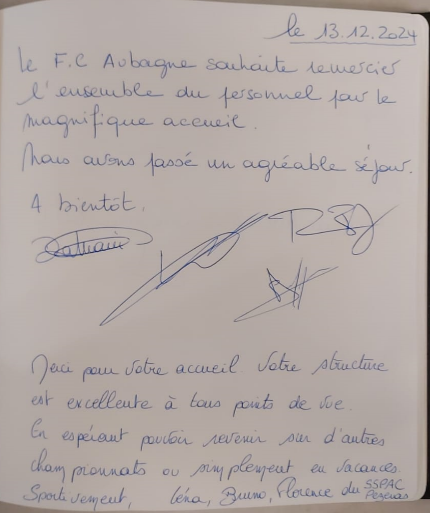 le 13.12.2024
Le F.C Aubagne souhaite remercier
l'ensemble du personnel par le
magnifique accueil.
Nous avons passé un agréable séjour.
A bientôt.
Merci pour votre accueil. Votre structure
est excellente à tous points de vue.
En espérant pouvoir revenir sur d'autres
championnats ou simplement en vacances.
Sportivement, Léna, Bruno, Florence du SSPAC
Pezenas